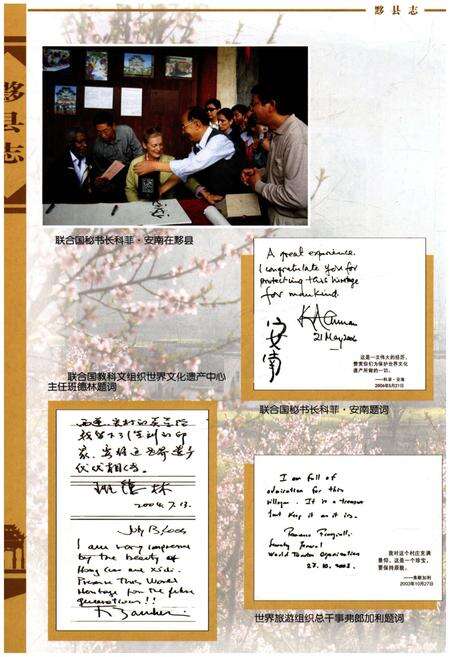 黟县志
黟县志
联合国秘书长科菲·安南在黟县
A great experience.
I congratulate you for
protecting this heritage
for mankind.
KAnnan
21 May 2006
安南
这是一次伟大的经历，
赞赏你们为保护世界文化
遗产所做的一切。
——科菲·安南
2006年5月21日
联合国秘书长科菲·安南题词
联合国教科文组织世界文化遗产中心
主任班德林题词
班德林
2004.7.13.
I am very impressed
by the beauty of
Hong Cun and Xidi.
Preserve This World
Heritage for the future
generations!!
I am full of
admiration for this
village. It is a treasure
Just keep it as it is.
World Tourism Organization
27.10.2003.
我对这个村庄充满
景仰。这是一个珍宝，
要保持原貌。
——弗朗加利
2003年10月27日
世界旅游组织总干事弗郎加利题词